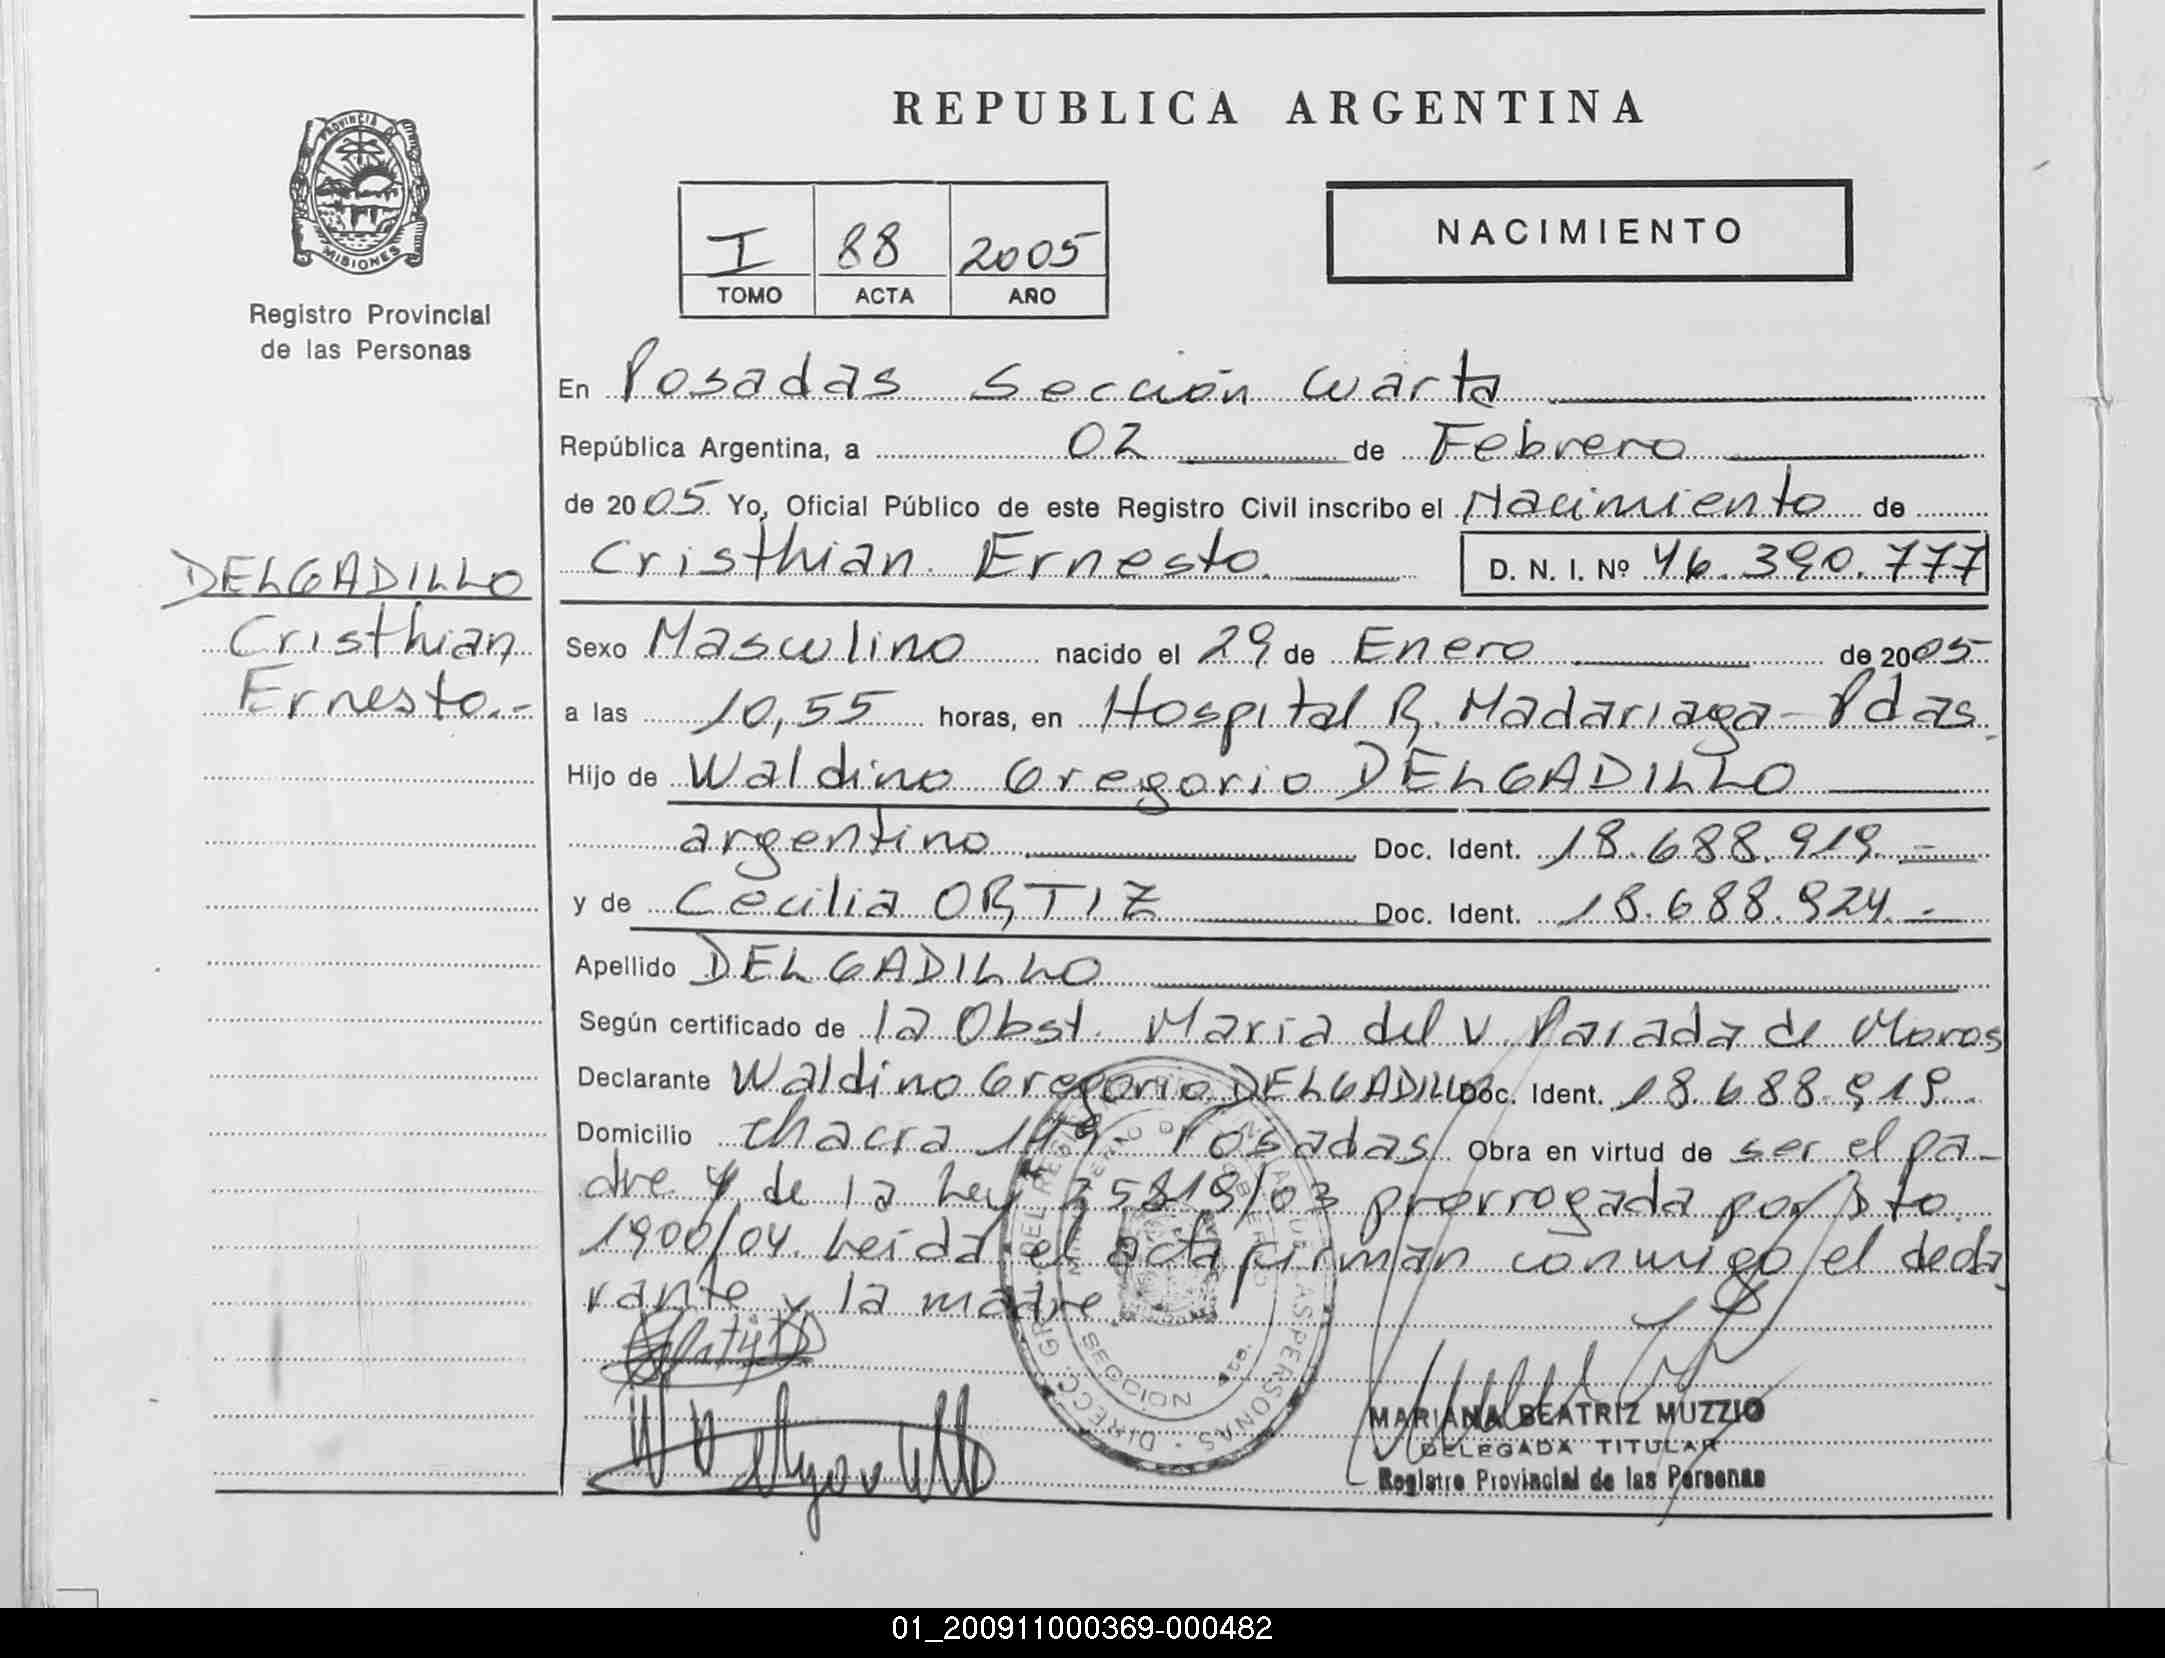 REPUBLICA ARGENTINA
PROVINCIA DE
MISIONES
Registro Provincial
de las Personas
I 88 2005
TOMO ACTA AÑO
NACIMIENTO
En Posadas Sección Cuarta
República Argentina, a 02 de Febrero
de 2005 Yo, Oficial Público de este Registro Civil inscribo el Nacimiento de
Cristhian Ernesto. D. N. I. Nº 46.390.777
DELGADILLO
Cristhian
Ernesto.-
Sexo Masculino nacido el 29 de Enero de 2005
a las 10,55 horas, en Hospital R. Madariaga - Pdas.
Hijo de Waldino Gregorio DELGADILLO
argentino Doc. Ident. 18.688.919.-
y de Cecilia ORTIZ Doc. Ident. 18.688.924.-
Apellido DELGADILLO
Según certificado de la Obst. Maria del V. Parada de Moros
Declarante Waldino Gregorio DELGADILLO Doc. Ident. 18.688.919.
Domicilio Chacra 149 Posadas Obra en virtud de ser el pa-
dre y de la Ley 25819/03 prorrogada por Dto.
1900/04. Leida el acta firman conmigo el decla
rante y la madre
MARIANA BEATRIZ MUZZIO
DELEGADA TITULAR
Registro Provincial de las Personas
01_200911000369-000482